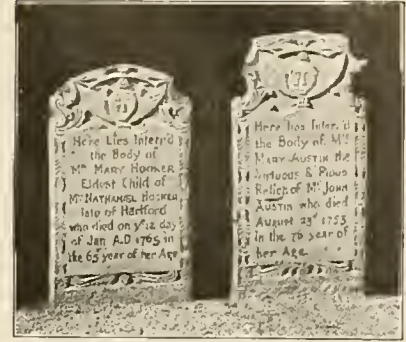 Here Lies Interr'd
the Body of
Mrs MARY HOOKER
Eldest Child of
Mr NATHANIEL HOOKER
late of Hartford
who died on ye 12 day
of Jan A.D 1765 in
the 65 year of her Age
Here lies Inter,'d
the Body of Mrs
MARY AUSTIN the
Virtuous & Pious
Relict of Mr JOHN
AUSTIN who died
AUGUST 23d 1753
in the 76 year of
her Age.